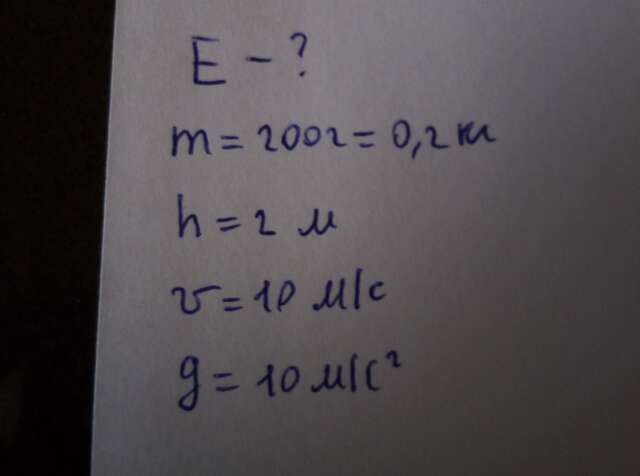 E - ?
m = 200г = 0,2 кг
h = 2 м
v = 10 м/с
g = 10 м/с²